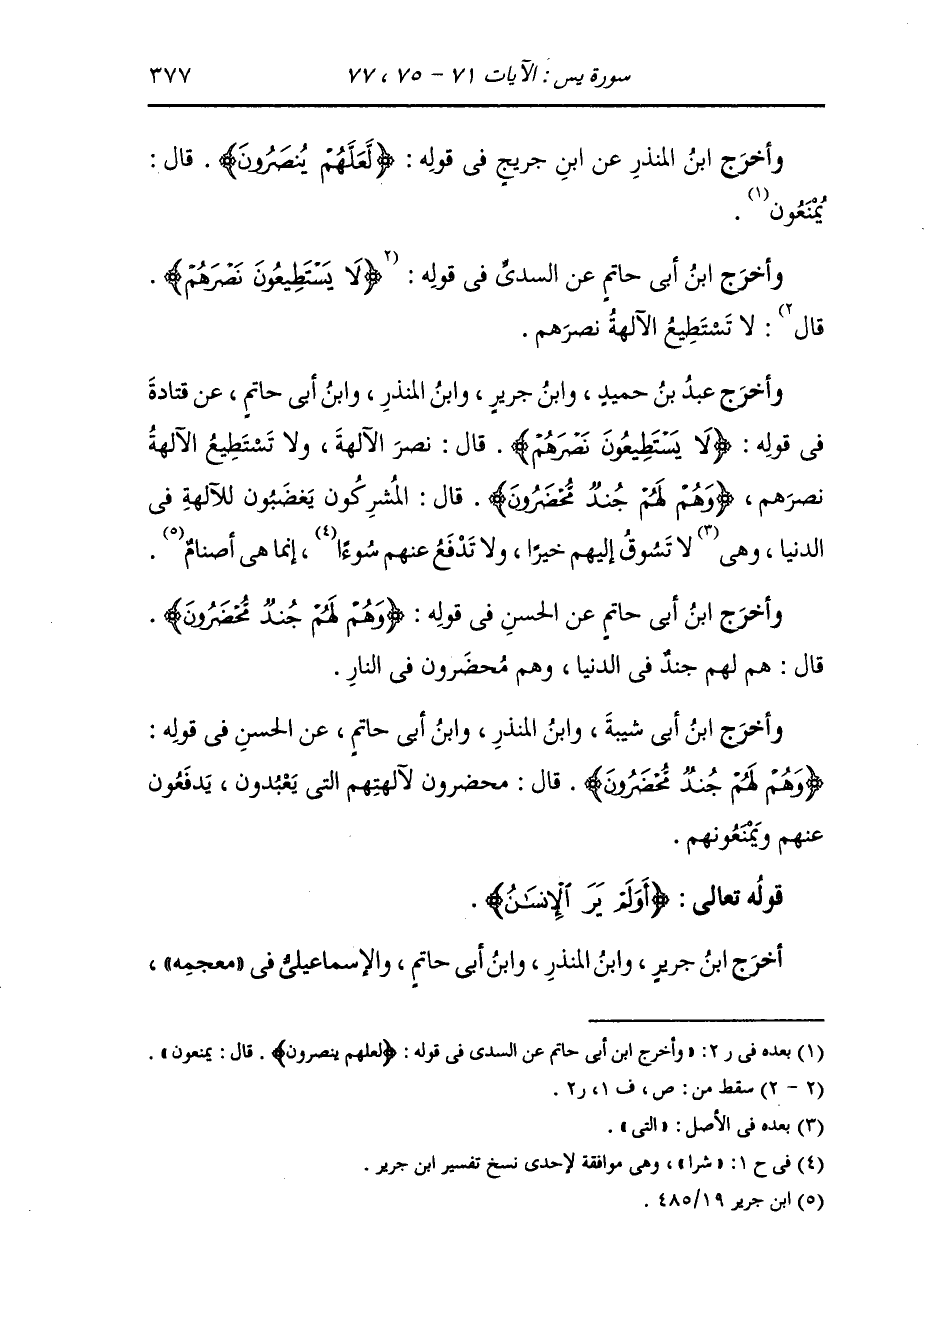 سورة يس : الآيات ٧١ - ٧٥ ، ٧٧ ٣٧٧
وأخرَج ابنُ المنذرِ عن ابنِ جريجٍ فى قولِه : ﴿لَّعَلَّهُمْ يُنصَرُونَ﴾ . قال :
يُمْنَعُون(١) .
وأخرَج ابنُ أبى حاتمٍ عن السدىِّ فى قولِه : (٢﴿لَا يَسْتَطِيعُونَ نَصْرَهُمْ﴾ .
قال٢) : لا تَسْتَطِيعُ الآلهةُ نصرَهم .
وأخرَج عبدُ بنُ حميدٍ ، وابنُ جريرٍ ، وابنُ المنذرِ ، وابنُ أبى حاتمٍ ، عن قتادةَ
فى قولِه : ﴿لَا يَسْتَطِيعُونَ نَصْرَهُمْ﴾ . قال : نصرَ الآلهةَ ، ولا تَسْتَطِيعُ الآلهةُ
نصرَهم ، ﴿وَهُمْ لَهُمْ جُندٌ مُّحْضَرُونَ﴾ . قال : المُشرِكُون يَغضَبُون للآلهةِ فى
الدنيا ، وهى(٣) لا تَسُوقُ إليهم خيرًا ، ولا تَدْفَعُ عنهم سُوءًا(٤) ، إنما هى أصنامٌ(٥) .
وأخرَج ابنُ أبى حاتمٍ عن الحسنِ فى قولِه : ﴿وَهُمْ لَهُمْ جُندٌ مُّحْضَرُونَ﴾ .
قال : هم لهم جندٌ فى الدنيا ، وهم مُحضَرون فى النارِ .
وأخرَج ابنُ أبى شيبةَ ، وابنُ المنذرِ ، وابنُ أبى حاتمٍ ، عن الحسنِ فى قولِه :
﴿وَهُمْ لَهُمْ جُندٌ مُّحْضَرُونَ﴾ . قال : محضرون لآلهتِهم التى يَعْبُدون ، يَدفَعُون
عنهم ويَمْنَعُونهم .
قولُه تعالى : ﴿أَوَلَمْ يَرَ ٱلْإِنسَـٰنُ﴾ .
أخرَج ابنُ جريرٍ ، وابنُ المنذرِ ، وابنُ أبى حاتمٍ ، والإسماعيلىُّ فى «معجمِه» ،
(١) بعده فى ر ٢: «وأخرج ابن أبى حاتم عن السدى فى قوله : ﴿لعلهم ينصرون﴾ . قال : يمنعون» .
(٢ - ٢) سقط من : ص ، ف ١ ، ر٢ .
(٣) بعده فى الأصل : «التى» .
(٤) فى ح ١: «شرا» ، وهى موافقة لإحدى نسخ تفسير ابن جرير .
(٥) ابن جرير ٤٨٥/١٩ .